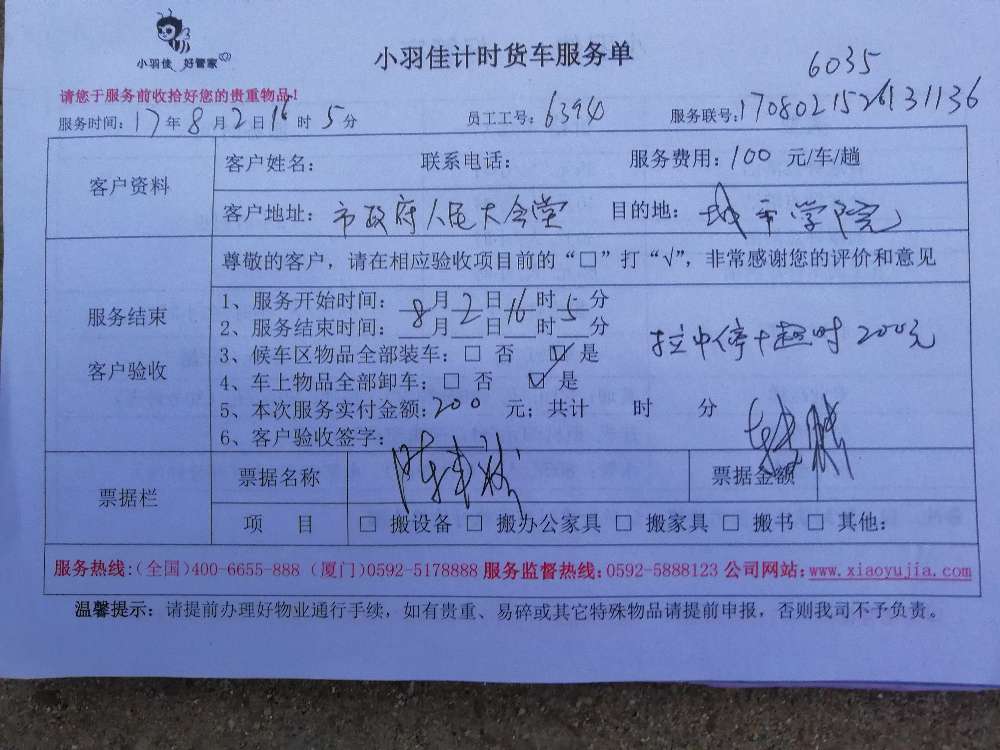 小羽佳 好管家
小羽佳计时货车服务单
6035
请您于服务前收拾好您的贵重物品!
服务时间: 17年8月2日16时5分 员工工号: 6394 服务联号: 170802152613 1136
客户资料
客户姓名: 联系电话: 服务费用: 100 元/车/趟
客户地址: 市政府人民大会堂 目的地: 城市学院
服务结束
客户验收
尊敬的客户，请在相应验收项目前的“□”打“√”，非常感谢您的评价和意见
1、服务开始时间: 8月2日16时5分
2、服务结束时间: 8月 日 时 分
3、候车区物品全部装车: □ 否 ☑ 是
4、车上物品全部卸车: □ 否 ☑ 是
5、本次服务实付金额: 200 元; 共计 时 分
6、客户验收签字:
中停+超时 200元
票据栏
票据名称 票据金额
项 目 □ 搬设备 □ 搬办公家具 □ 搬家具 □ 搬书 □ 其他:
服务热线:(全国)400-6655-888 (厦门)0592-5178888 服务监督热线:0592-5888123 公司网站:www.xiaoyujia.com
温馨提示: 请提前办理好物业通行手续，如有贵重、易碎或其它特殊物品请提前申报，否则我司不予负责。